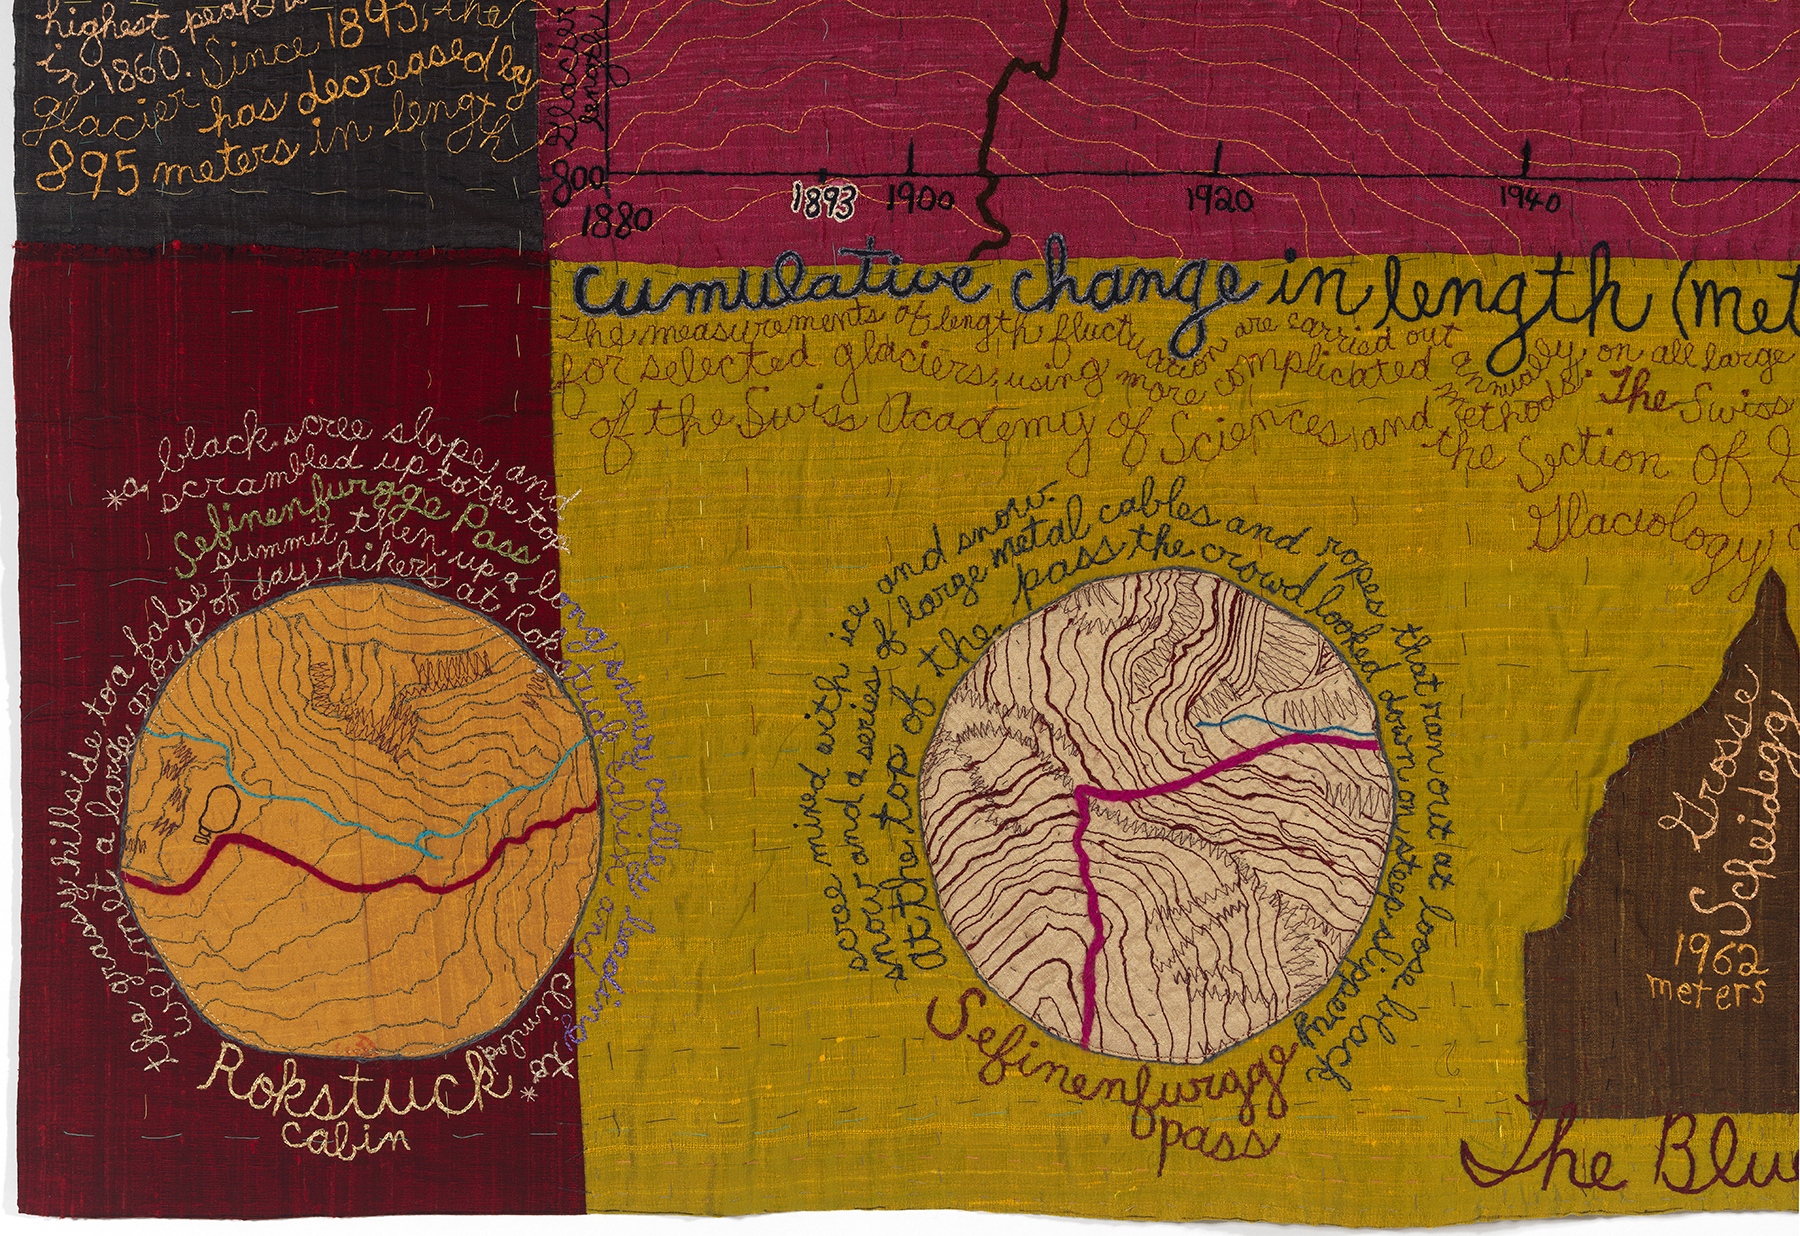 highest peak
in 1860. Since 1893, the
Glacier has decreased by
895 meters in length
Glacier
length
800
1880
1893
1900
1920
1940
Cumulative change in length (met
The measurements of length fluctuation are carried out annually, on all large
for selected glaciers, using more complicated methods. The Swiss
of the Swiss Academy of Sciences, and the Section of
Glaciology
*a black scree slope, and
scrambled up to the top
Sefinenfurgge Pass
the grassy hillside to a false summit then up a long snowy valley looking to*
we met a large group of day hikers at Rokstuck cabin and climbed
Rokstuck
cabin
scree mixed with ice and snow.
snow and a series of large metal cables and ropes that ran out at loose black
At the top of the pass the crowd looked down on steep slippery
Sefinenfurgge
pass
Grosse
Scheidegg
1962
meters
The Blue